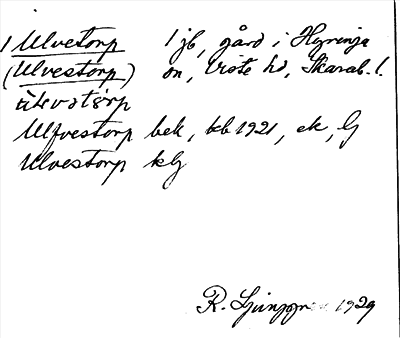 1 Ulvetorp 1 jb, gård i Hyringa
(Ulvestorp) sn, Viste hd, Skarab. l.
Ulfvestorp bek, kb 1921, ek, lj
Ulvestorp klj
R. Ljunggren 1929